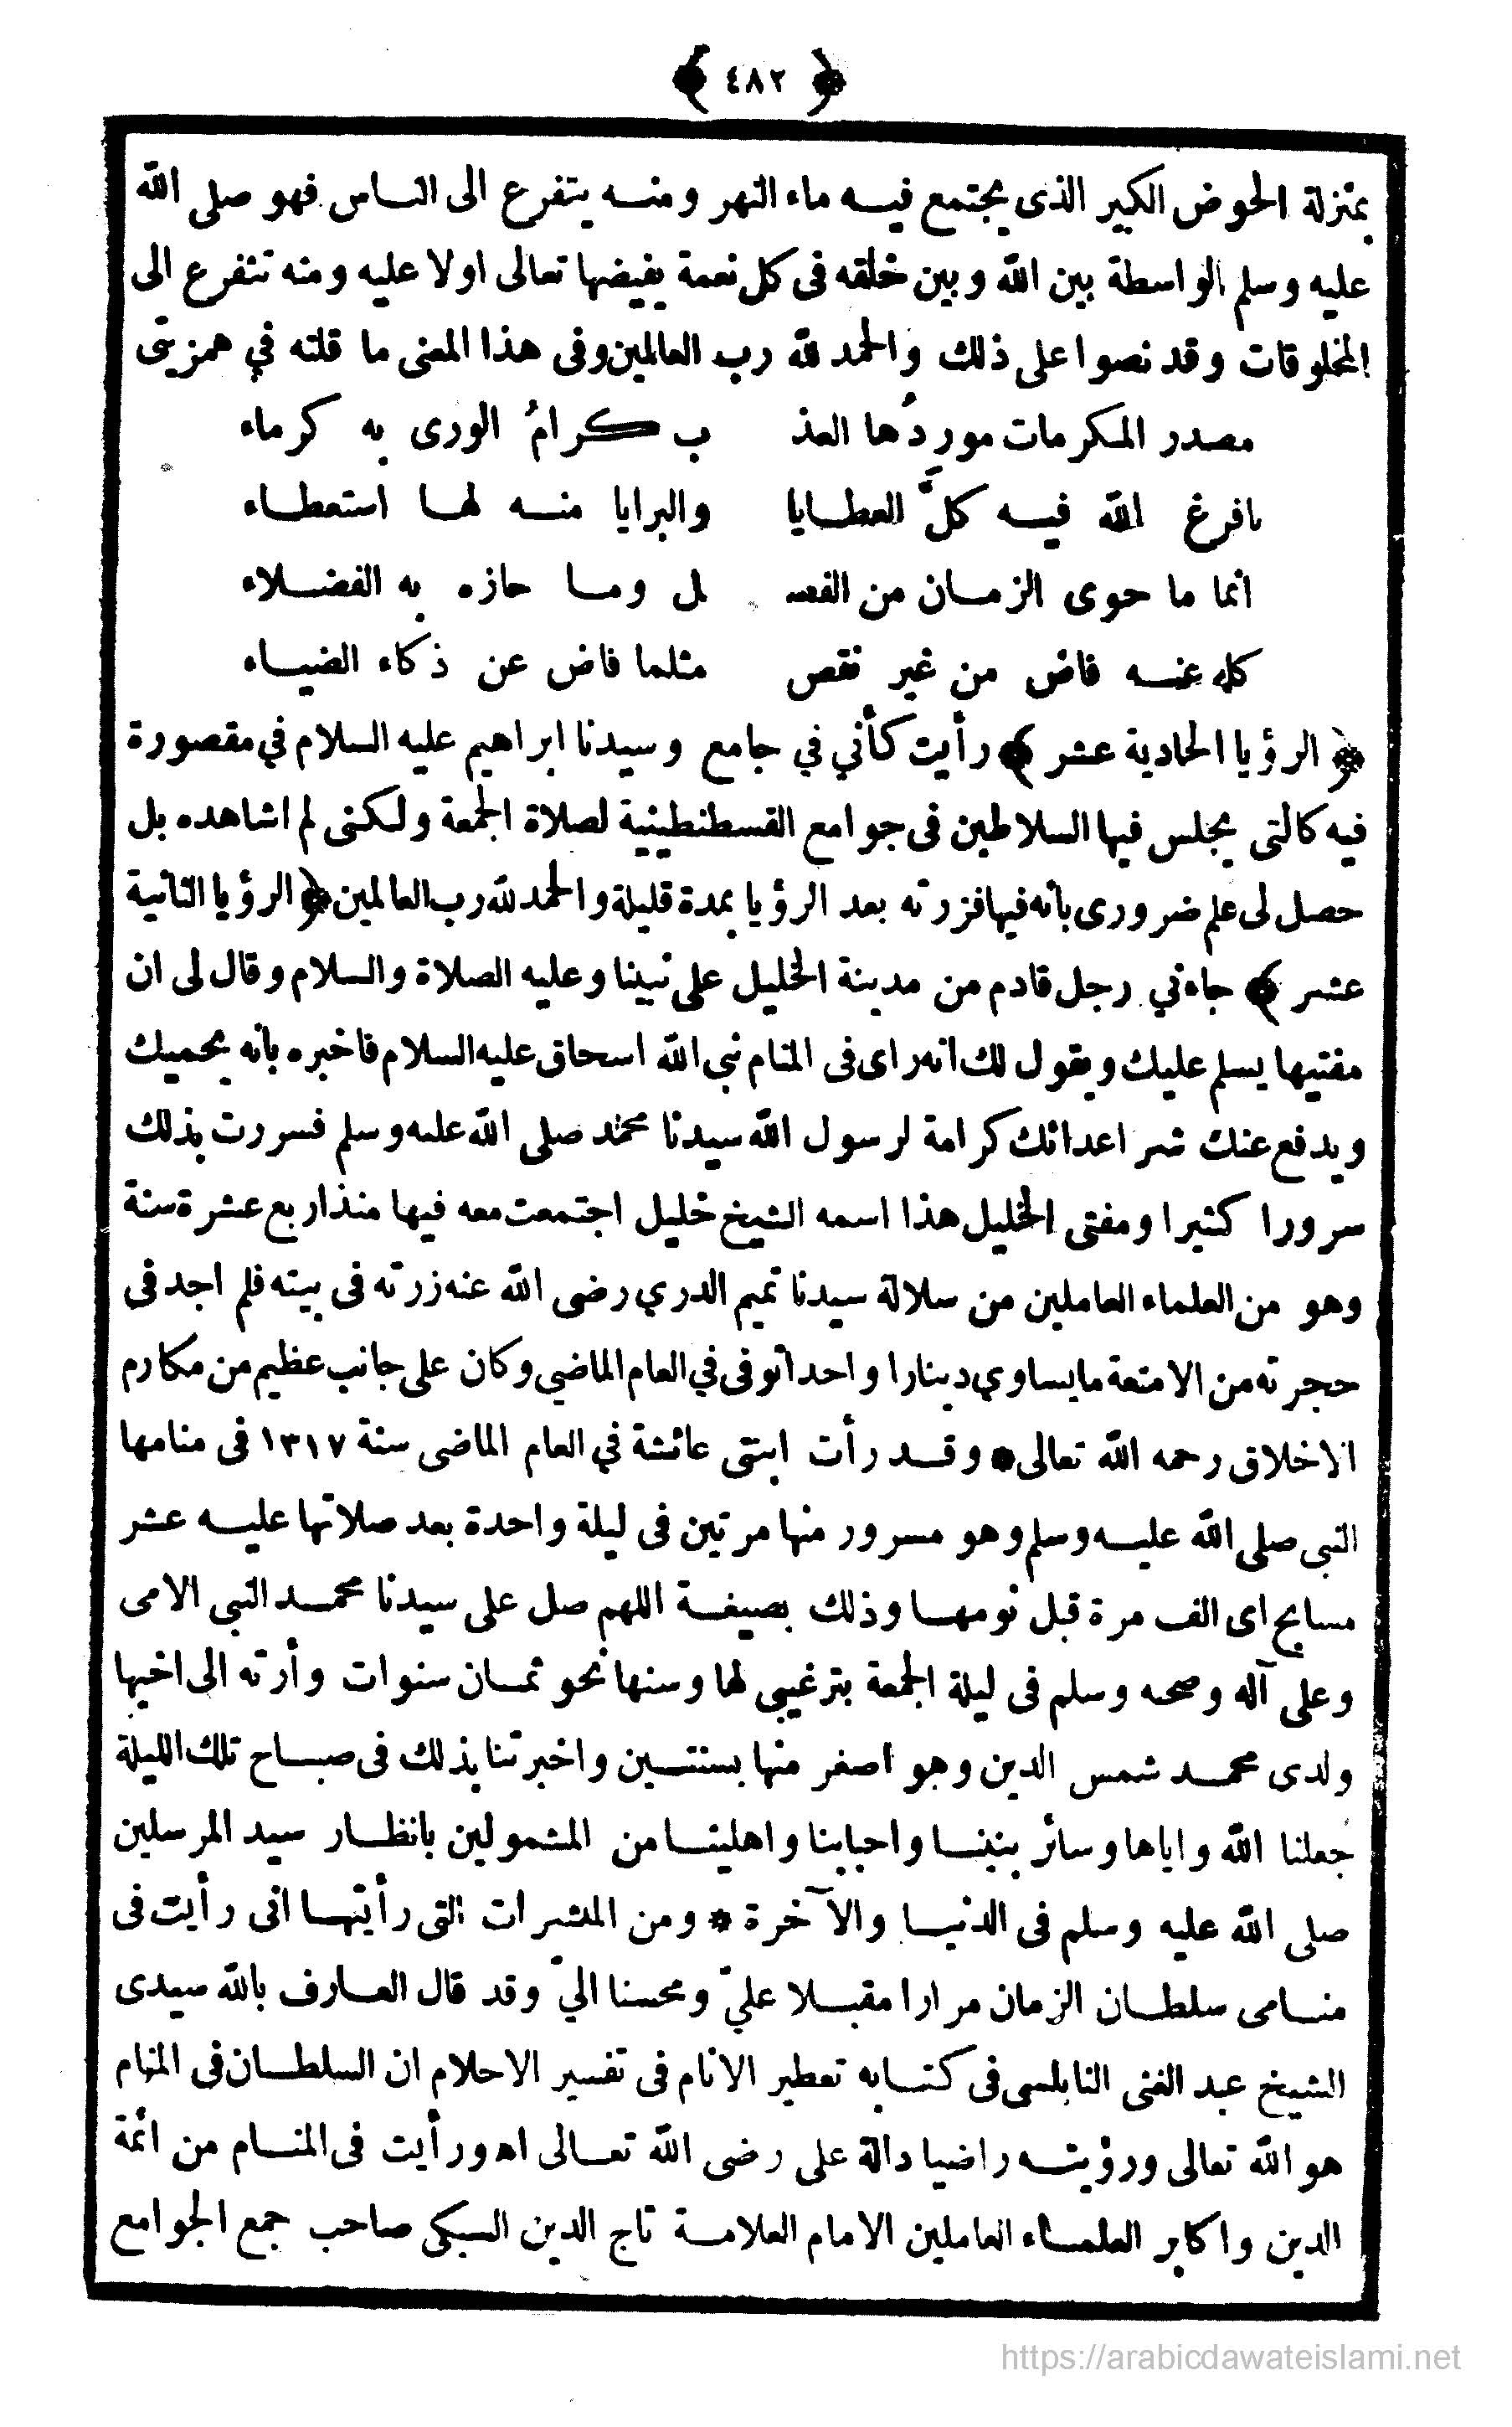 ﴿ ٤٨٢ ﴾
بمنزلة الحوض الكبير الذى يجتمع فيه ماء النهر ومنه يتفرع الى الناس فهو صلى الله
عليه وسلم الواسطة بين الله وبين خلقه فى كل نعمة يفيضها تعالى اولا عليه ومنه تتفرع الى
المخلوقات وقد نصوا على ذلك والحمد لله رب العالمين وفى هذا المعنى ما قلته في همزيتى
مصدر المكرمات موردُها العذ ب كرامُ الورى به كرماء
افرغ الله فيه كلَّ العطايا والبرايا منه لها استعطاء
انما ما حوى الزمان من الفضـ ـل وما حازه به الفضلاء
كله عنه فاض من غير نقص مثلما فاض عن ذكاء الضياء
﴿ الرؤيا الحادية عشر ﴾ رأيت كأني في جامع وسيدنا ابراهيم عليه السلام في مقصورة
فيه كالتى يجلس فيها السلاطين فى جوامع القسطنطينية لصلاة الجمعة ولكنى لم اشاهده بل
حصل لى علم ضرورى بانه فيها فزرته بعد الرؤيا بمدة قليلة والحمد لله رب العالمين ﴿ الرؤيا الثانية
عشر ﴾ جاءني رجل قادم من مدينة الخليل على نبينا وعليه الصلاة والسلام وقال لى ان
مفتيها يسلم عليك ويقول لك انه راى فى المنام نبى الله اسحاق عليه السلام فاخبره بانه يحميك
ويدفع عنك شر اعدائك كرامة لرسول الله سيدنا محمد صلى الله عليه وسلم فسررت بذلك
سرورا كثيرا ومفتى الخليل هذا اسمه الشيخ خليل اجتمعت معه فيها منذ اربع عشرة سنة
وهو من العلماء العاملين من سلالة سيدنا تميم الدري رضى الله عنه زرته فى بيته فلم اجد فى
حجرته من الامتعة ما يساوي دينارا واحدا توفى في العام الماضي وكان على جانب عظيم من مكارم
الاخلاق رحمه الله تعالى * وقد رأت ابنتى عائشة في العام الماضى سنة ١٣١٧ فى منامها
النبى صلى الله عليه وسلم وهو مسرور منها مرتين فى ليلة واحدة بعد صلاتها عليه عشر
مسابح اى الف مرة قبل نومها وذلك بصيغة اللهم صل على سيدنا محمد النبى الامى
وعلى آله وصحبه وسلم فى ليلة الجمعة بترغيبى لها وسنها نحو ثمان سنوات وأرته الى اخيها
ولدى محمد شمس الدين وهو اصغر منها بسنتين واخبرتنا بذلك فى صباح تلك الليلة
جعلنا الله واياها وسائر بنينا واحبابنا واهلينا من المشمولين بانظار سيد المرسلين
صلى الله عليه وسلم فى الدنيا والآخرة * ومن المبشرات التى رأيتها انى رأيت فى
منامى سلطان الزمان مرارا مقبلا عليّ ومحسنا اليّ وقد قال العارف بالله سيدى
الشيخ عبد الغنى النابلسى فى كتابه تعطير الانام فى تفسير الاحلام ان السلطان فى المنام
هو الله تعالى ورؤيته راضيا دالة على رضى الله تعالى اه ورأيت فى المنام من ائمة
الدين واكابر العلماء العاملين الامام العلامة تاج الدين السبكى صاحب جمع الجوامع
https://arabicdawateislami.net